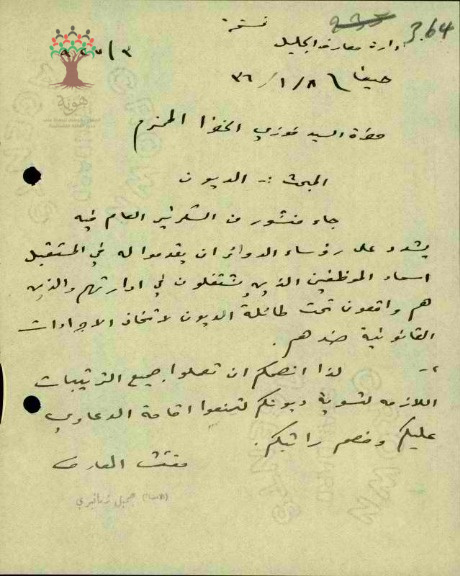 نسخة
3.64
ادارة معارف الجليل
٩٢٥/٣
حيفا ٣٦/١/٨
هوية
حضرة السيد فوزي الخضرا المحترم
المبحث :- الديون
جاء منشور من السكرتير العام فيه
يشدد على رؤساء الدوائر ان يقدموا له في المستقبل
اسماء الموظفين الذين يشتغلون في ادارتهم والذين
هم واقعون تحت طائلة الديون لاتخاذ الاجراءات
القانونية ضدهم.
٢- لذا انصحكم ان تعملوا جميع الترتيبات
اللازمة لتسوية ديونكم لتمنعوا اقامة الدعاوي
عليكم وخصم راتبكم.
مفتش المعارف
(الامضاء) جميل